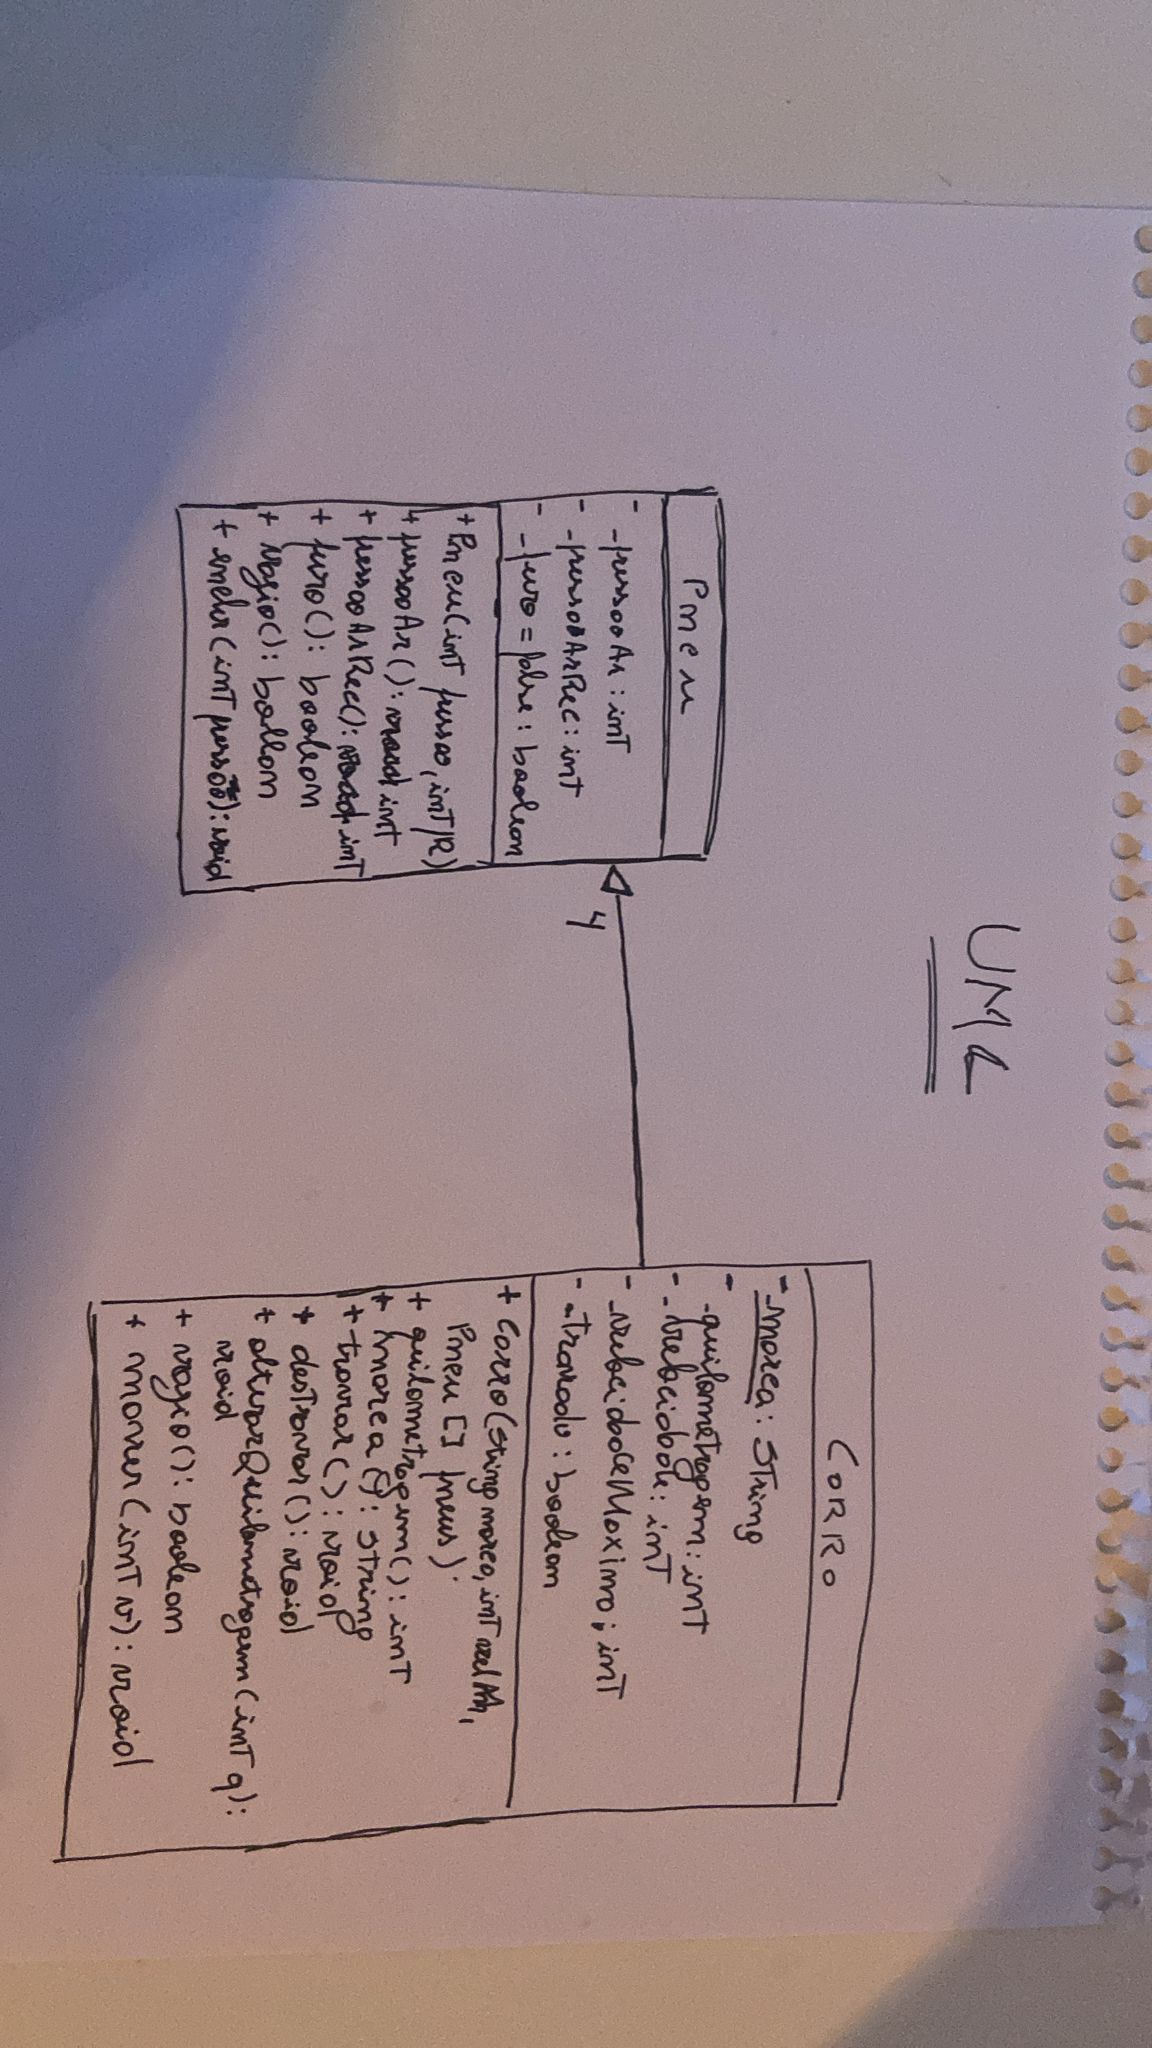 UML
Pneu
- _pressaoAr : int
- _pressaoArRec : int
- _furo = false : boolean
+ Pneu(int pressao, int pR)
+ pressaoAr() : void int
+ pressaoArRec() : void int
+ furo() : boolean
+ vazio() : bollean
+ encher(int pressão) : void
4
CARRO
- _marca : String
- _quilometragem : int
- _velocidade : int
- _velocidadeMaxima : int
- _travado : boolean
+ Carro(Sting marca, int velMh,
Pneu [] pneus)
+ quilometragem() : int
+ marca() : String
+ travar() : void
+ destravar() : void
+ alterarQuilometragem(int q) :
void
+ vazio() : boolean
+ mover(int v) : void